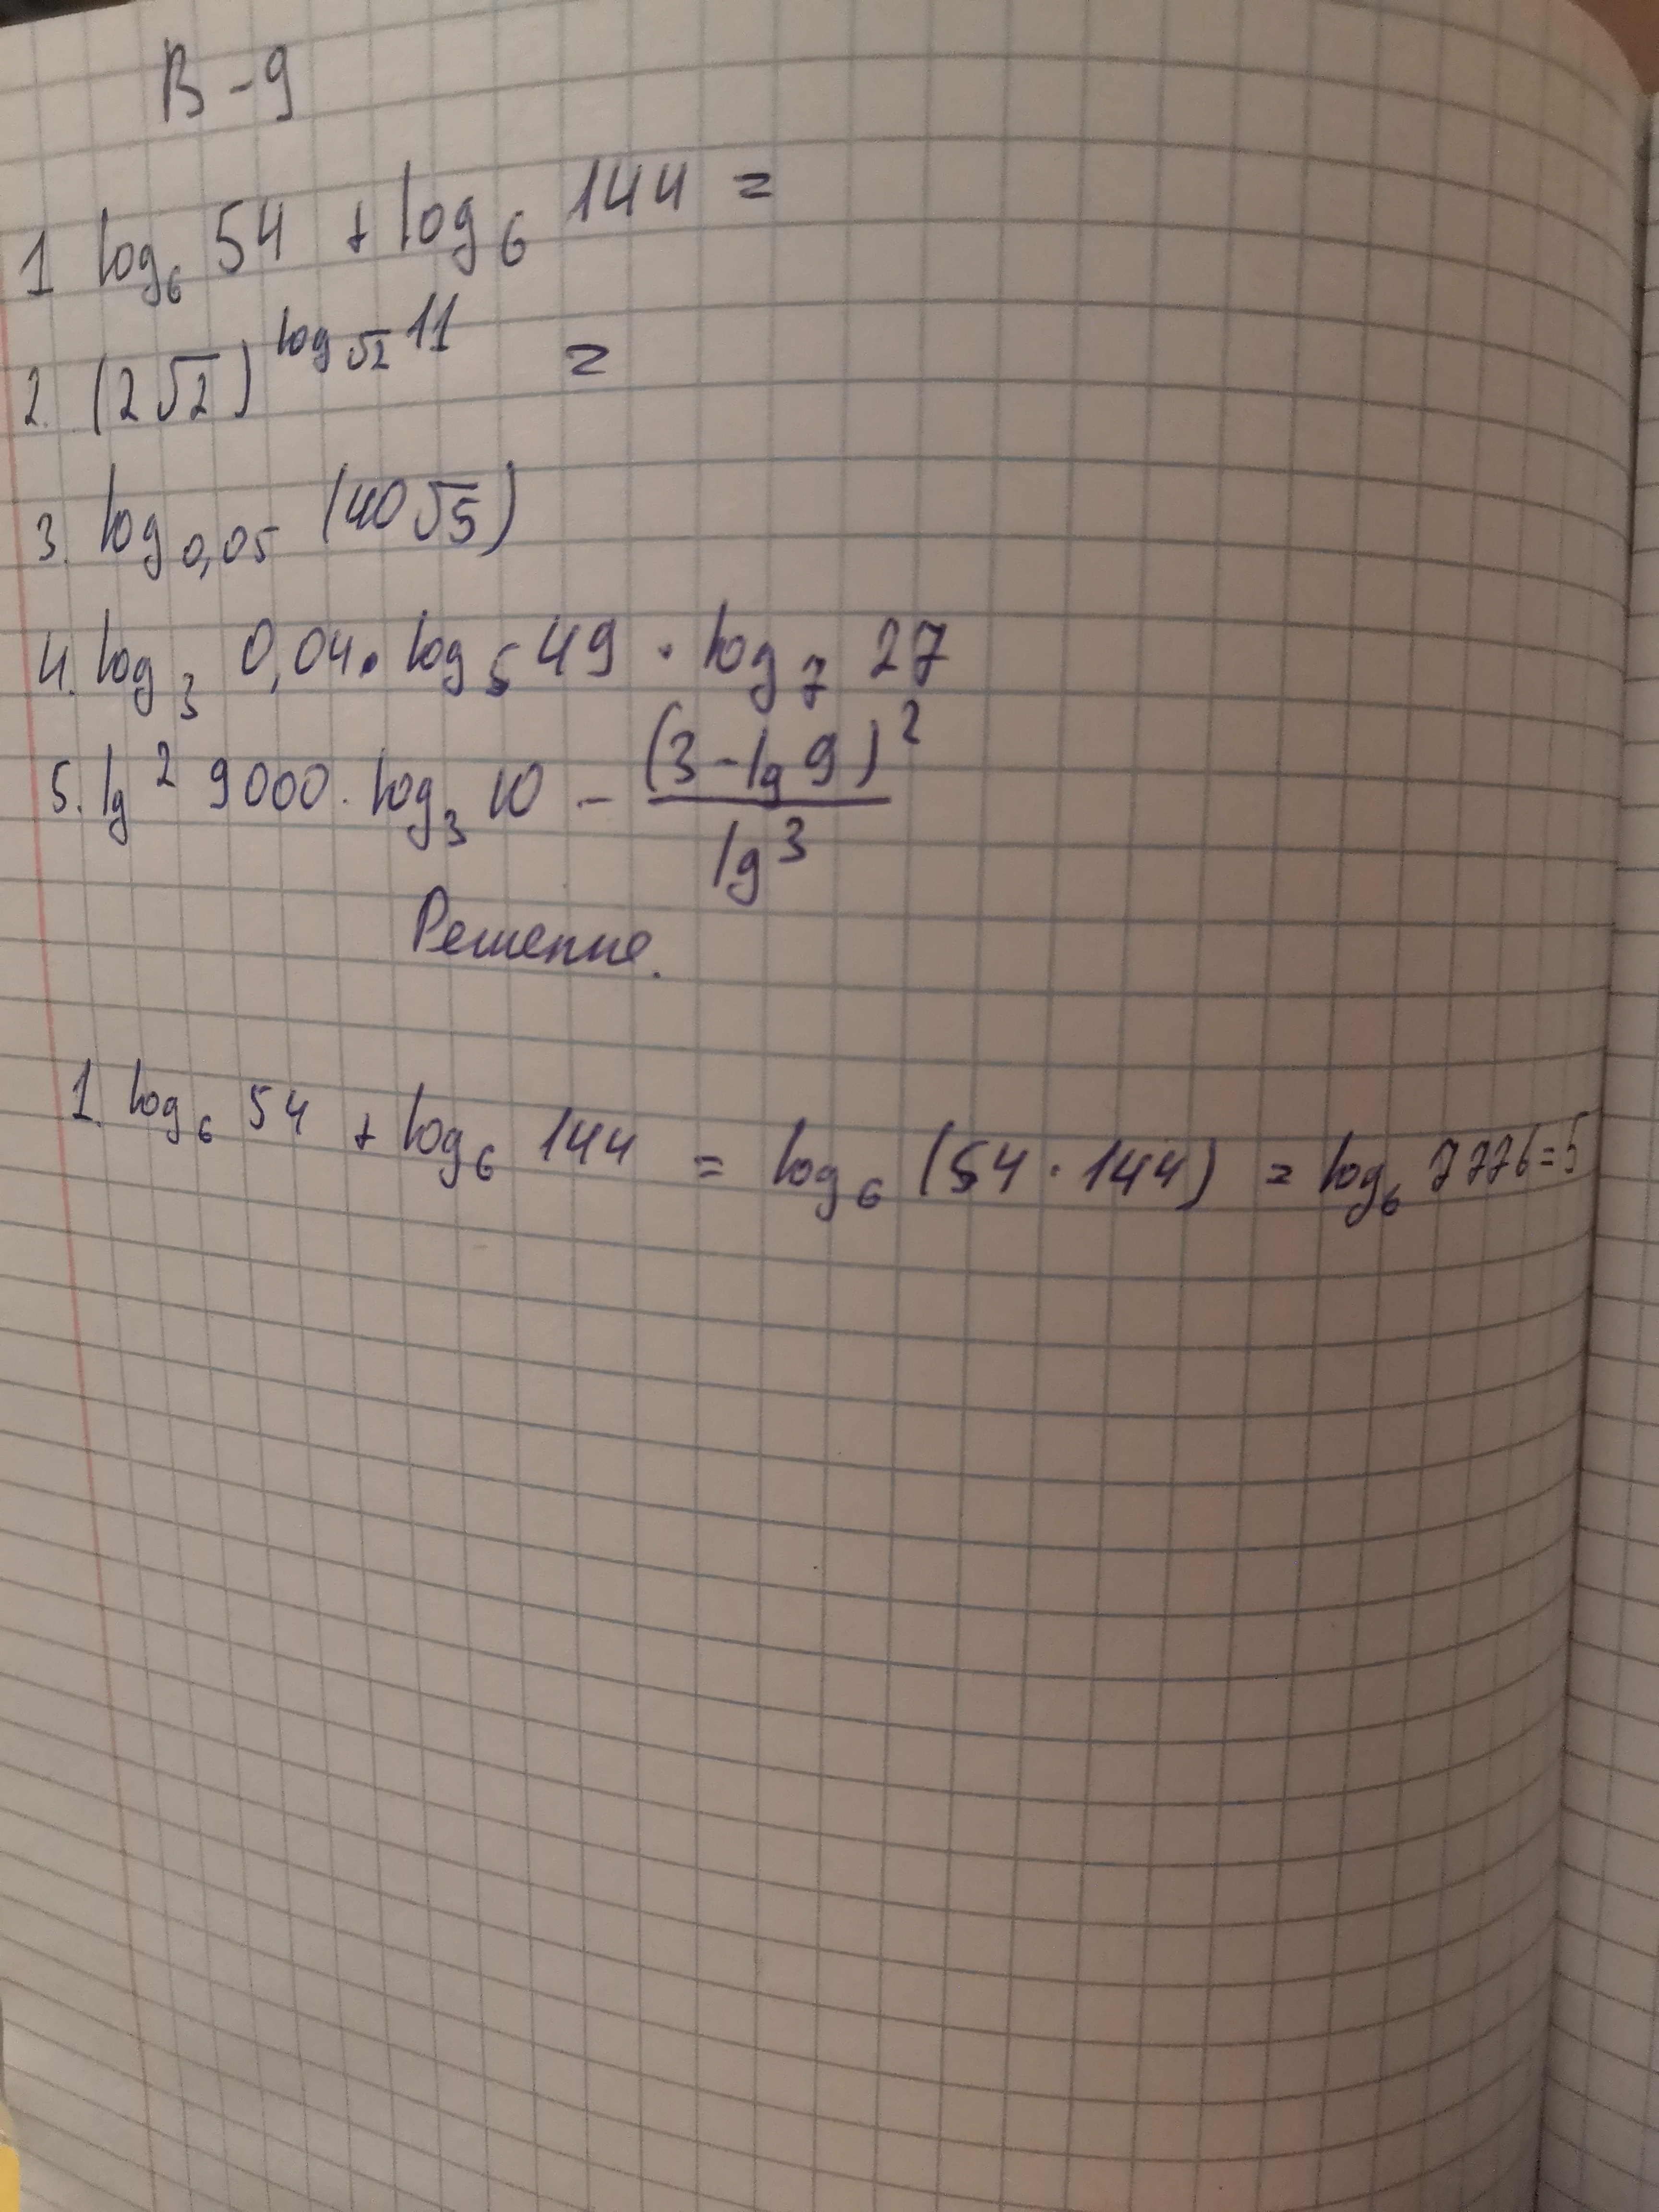 В-9
1 log₆ 54 + log₆ 144 =
2. (2√2)^(log_√2 11) =
3. log₀,₀₅ (40√5)
4. log₃ 0,04 · log₅ 49 · log₇ 27
5. lg² 9000 · log₃ 10 - (3-lg 9)² / lg 3
Решение.
1. log₆ 54 + log₆ 144 = log₆ (54 · 144) = log₆ 7776 = 5